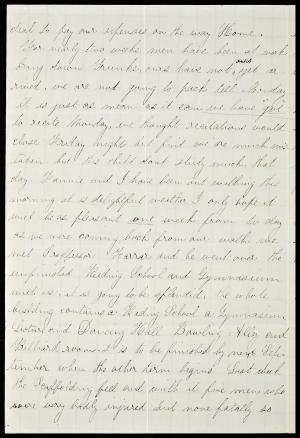 deal to pay our expenses on the way Home.
For nearly two weeks men have been at work
bring down Trunks, ours have not yet ar
rived, we are not going to pack till Monday
it is just as mean as it can we have "got"
to recite Monday, we thought recitations would
close Friday night but find we are much mis
taken but this child dont study much that
day Fannie and I have been out walking this
morning it is delightful weather I only hope it
will be as pleasant one week from to day
as we were coming back from our walk we
met Proffesor Farrar and he went over the
unfinished Riding School and Gymnasium
with us. it is going to be splendid. The whole
building contains a Riding School a Gymnasium
and Dancing Hall Bowling Alley and
Billiard room it is to be finished by next Sep
tember when the other term begins. Last week
the Scaffolding fell and with it five men who
were very badly injured but none fatally so